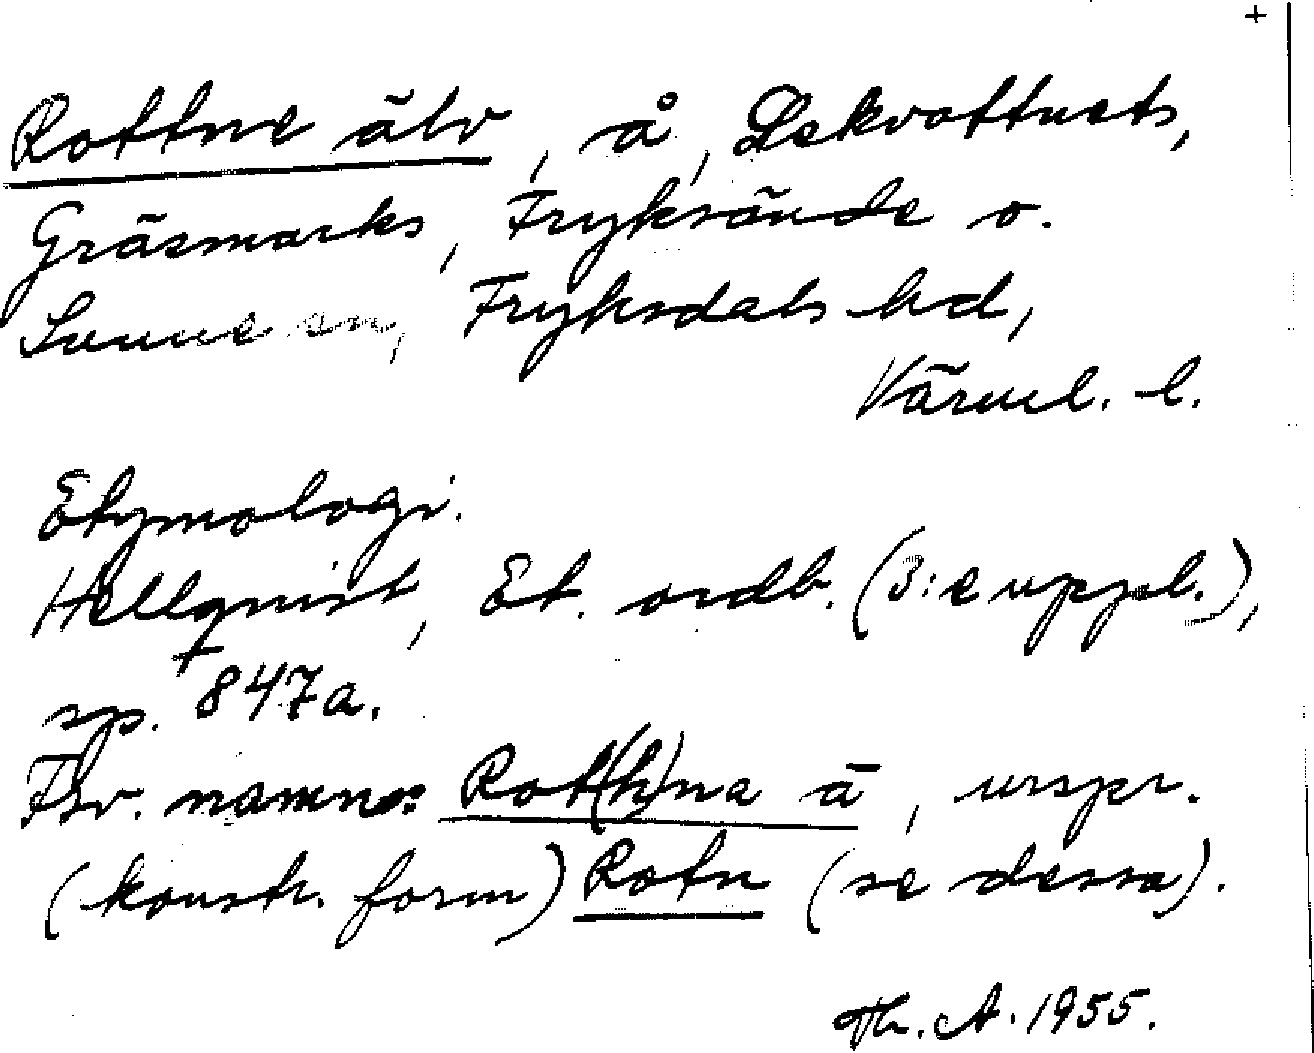 +
Rottne älv, å, Lekvattnets,
Gräsmarks, Fryksände o.
Sunne sn, Fryksdals hd,
Värml. l.
Etymologi.
Hellquist, Et. ordb. (3:e uppl.),
sp. 847a.
Fsv. namn: Rot(h)na ā, urspr.
(konstr. form) Rotn (se dessa).
Th. A. 1955.